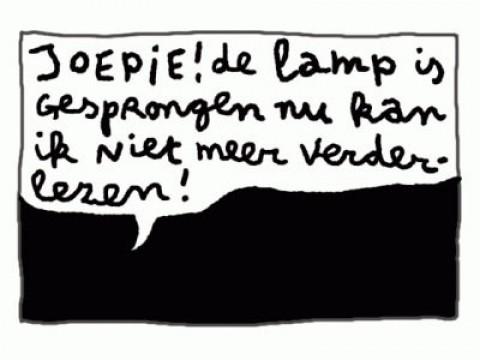 JOEPiE! de lamp is
GesPRongen nu kan
ik Niet meer verder-
lezen!